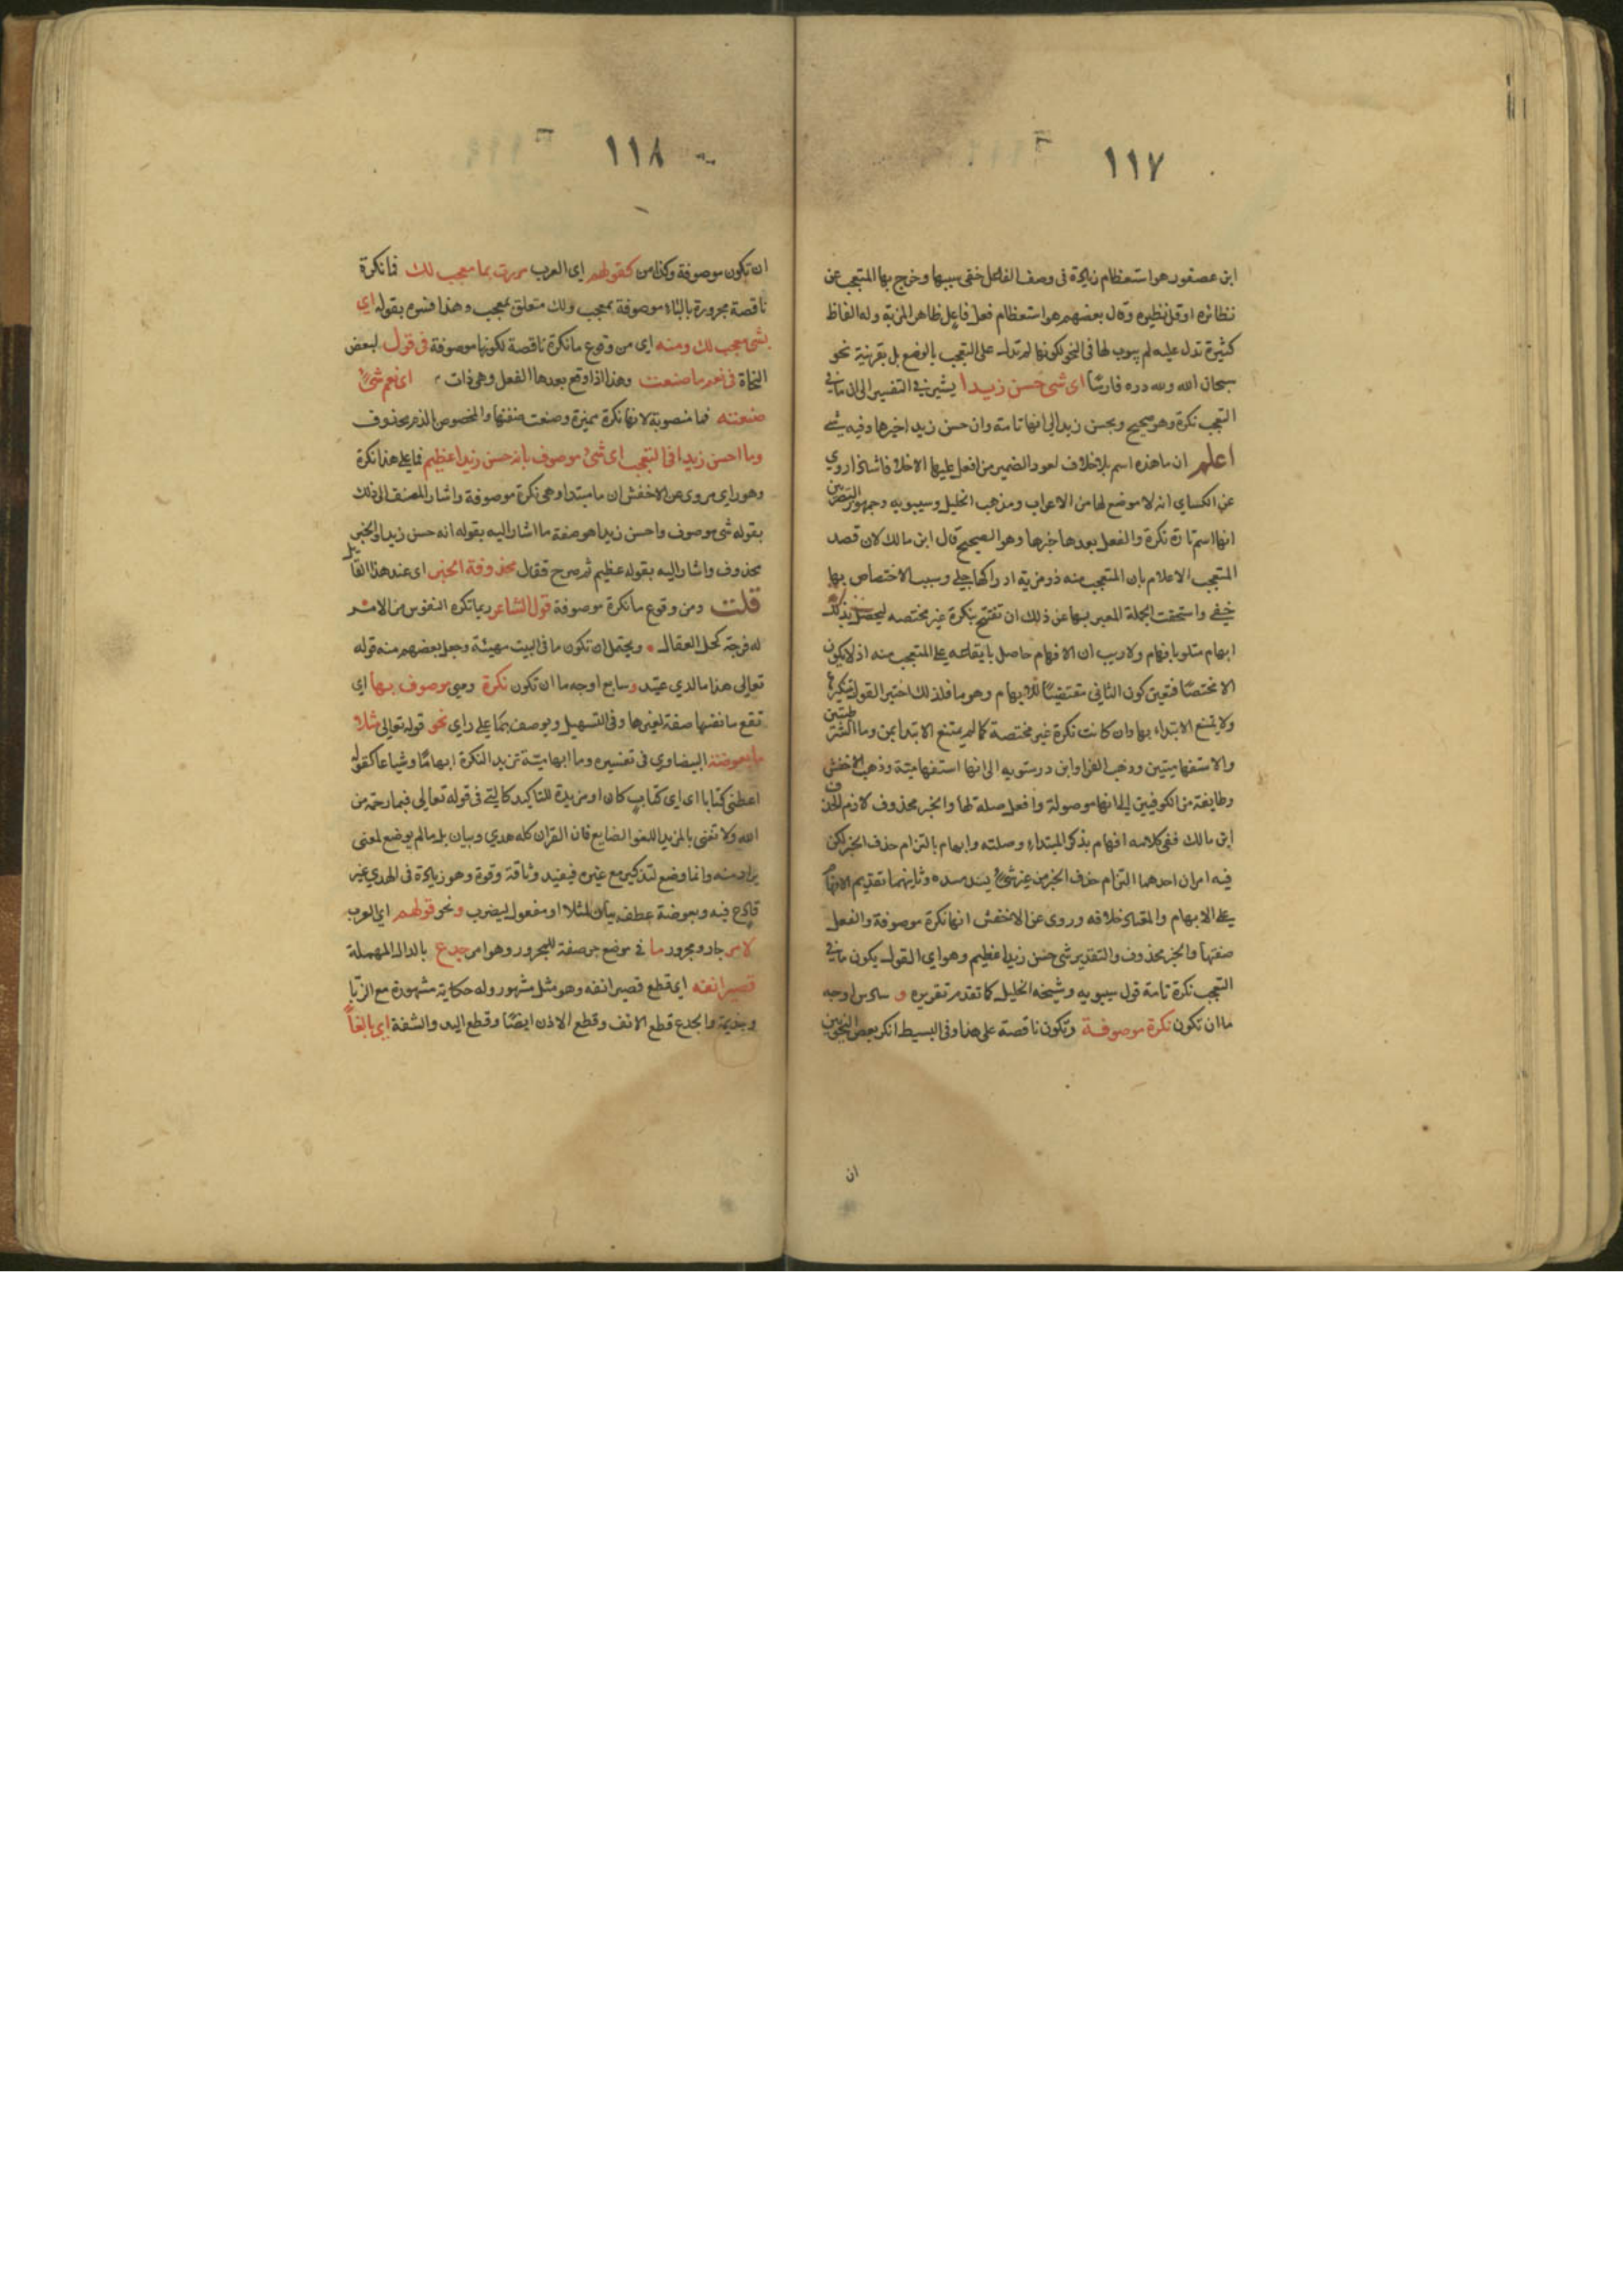 ١١٧
ابن عصفور هو استعظام زيادة فى وصف الفاعل خفى سببها وخرج بها المتعجب عن
نظائره او قل نظيره وقال بعضهم هو استعظام فعل فاعل ظاهر المزية وله الفاظ
كثيرة تدل عليه لم يبوب لها فى النحو لكونها لم تدل على التعجب بالوضع بل بقرينة نحو
سبحان الله ولله دره فارسًا اى شى حسن زيدا يشير فى التفسير الى ان ما فى
التعجب نكرة وهو صحيح وبحسن زيدا الى انها تامة وان حسن زيدا خبرها وفيه شى
اعلم ان ما هذه اسم بلا خلاف لعود الضمير من افعل عليها الا خلافا شاذا روي
عن الكساي انه لا موضع لها من الاعراب ومذهب الخليل وسيبويه وجمهور البصريين
انها اسم تامة نكرة والفعل بعدها خبرها وهو الصحيح قال ابن مالك لان قصد
المتعجب الاعلام بان المتعجب منه ذو مزية ادراكها جلي وسبب الاختصاص بها
خفي واستحقت الجملة المعبر بها عن ذلك ان تفتتح بنكرة غير مختصه ليحصل بذلك
ابهام متلو بافهام ولا ريب ان الافهام حاصل بايقاعه على المتعجب منه اذ لا يكون
الا مختصًا فتعين كون الثانى مقتضيًا للابهام وهو ما فلذلك اختير القول بتنكيرها
ولا يمتنع الابتداء بها وان كانت نكرة غير مختصة كما لم يمتنع الابتدا بمن وما الشرطيتين
والاستفهاميتين وذهب الفرا وابن درستويه الى انها استفهامية وذهب الاخفش
وطايفة من الكوفيين الى انها موصولة وافعل صلة لها والخبر محذوف لازم الحذف
ابن مالك ففى كلامه افهام بذكر المبتداء وصلته وابهام بالتزام حذف الخبر لكن
فيه امران احدهما التزام حذف الخبر من غير شئ يسد مسده وثانيهما تقديم الافهام
على الابهام والمعتاد خلافه وروى عن الاخفش انها نكرة موصوفة والفعل
صفتها والخبر محذوف والتقدير شى حسن زيدا عظيم وهو اي القول بكون ما فى
التعجب نكرة تامة قول سيبويه وشيخه الخليل كما تقدم تقريره و سادس اوجه
ما ان تكون نكرة موصوفة وتكون ناقصة على هذا وفى البسيط انكر بعض النحويين
ان
١١٨
ان تكون موصوفة وكذا من كقولهم اى العرب مررت بما معجب لك فما نكرة
ناقصة مجرورة بالباء موصوفة بمعجب ولك متعلق بمعجب وهذا فسره بقوله اي
بشى معجب لك ومنه اى من وقوع ما نكرة ناقصة لكونها موصوفة فى قول لبعض
النحاة فى نعم ما صنعت وهذا اذا وقع بعدها الفعل وهى ذات اى نعم شئ
صنعته فما منصوبة لانها نكرة مميزة وصنعت صفتها والمخصوص بالذم محذوف
وما احسن زيدا فى التعجب اى شئ موصوف بانه حسن زيدا عظيم فما على هذا نكرة
وهو راي مروى عن الاخفش ان ما مبتدا وهى نكرة موصوفة واشار المصنف الى ذلك
بقوله شى موصوف واحسن زيدا هو صفة ما اشار اليه بقوله انه حسن زيدا والخبر
محذوف واشار اليه بقوله عظيم ثم صرح فقال محذوفة الخبر اى عند هذا القائل
قلت ومن وقوع ما نكرة موصوفة قول الشاعر ربما تكره النفوس من الامر
له فرجة كحل العقال ويحتمل ان تكون ما فى البيت مهيئة وجعل بعضهم منه قوله
تعالى هذا ما لدي عتيد وسابع اوجه ما ان تكون نكرة وهى موصوف بها اي
تقع ما نفسها صفة لغيرها وفى التسهيل ويوصف بما على راي نحو قوله تعالى مثلا
ما بعوضة البيضاوي فى تفسيره وما ابهامية تزيد النكرة ابهامًا وشياعا كقولك
اعطنى كتابا ما اى اى كتاب كان او مزيدة للتاكيد كالتي فى قوله تعالى فبما رحمة من
الله ولا نعنى بالمزيد اللغو الضايع فان القران كله هدي وبيان بل ما لم يوضع لمعنى
يراد منه وانما وضع لتذكير مع غيره فيفيد وثاقة وقوة وهو زيادة فى الهدي غير
قادح فيه وبعوضة عطف بيان لمثلا او مفعول ليضرب ونحو قولهم اى العرب
لامر جار ومجرور ما فى موضع جر صفة للمجرور وهو امر جدع بالدال المهملة
قصير انفه اى قطع قصير انفه وهو مثل مشهور وله حكاية مشهورة مع الزبا
وجذيمة والجدع قطع الانف وقطع الاذن ايضًا وقطع اليد والشفة اى بالغا